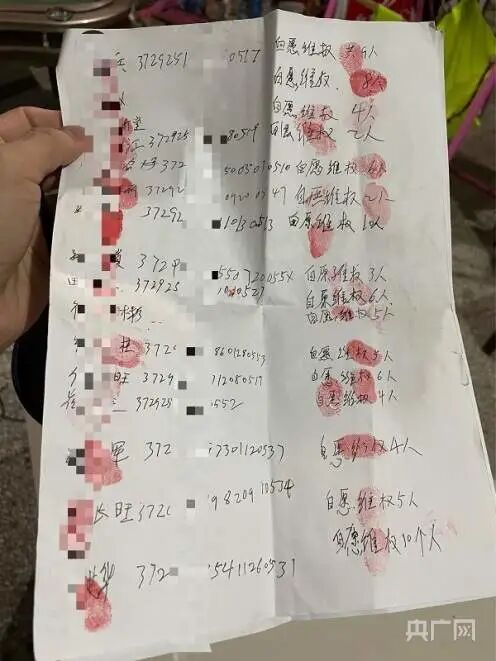 3729251 0517 自愿维权 6人
自愿维权 8人
自愿维权 4人
372925 80519 自愿维权 2人
372 5005010510 自愿维权 6人
37292 0920 0747 自愿维权 2人
37292 11010 0513 自愿维权 1人
372 550720055X 自愿维权 3人
372925 10 0527 自愿维权 6人
自愿维权 5人
372 8601280553 自愿维权 5人
旺 3729 112050517 自愿维权 6人
372928 552 自愿维权 4人
军 372 7301120537 自愿维权 4人
长旺 372 9820910534 自愿维权 5人
自愿维权 10个人
华 372 5411260531
央广网